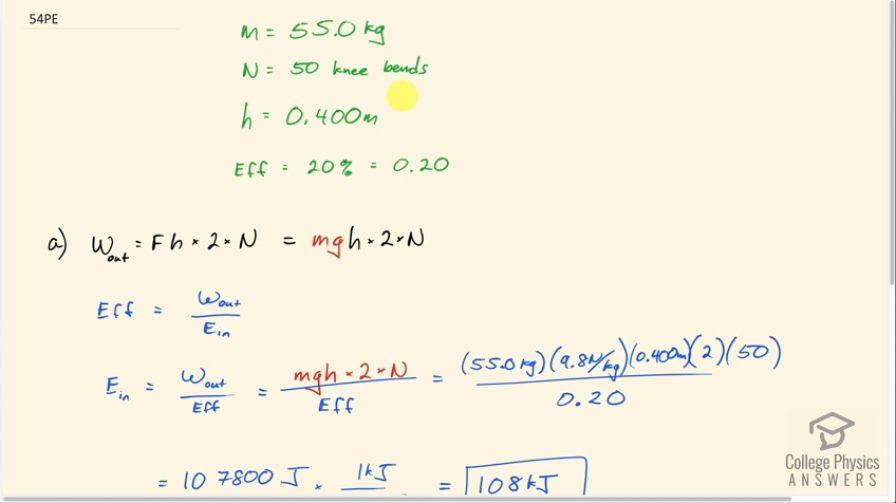 54PE
m = 55.0 kg
N = 50 knee bends
h = 0.400m
Eff = 20% = 0.20
a) Wout = Fh × 2 × N = mgh × 2 × N
Eff = Wout / Ein
Ein = Wout / Eff = mgh × 2 × N / Eff = (55.0 kg)(9.8N/kg)(0.400m)(2)(50) / 0.20
= 107800 J × 1kJ = 108kJ
College Physics
ANSWERS